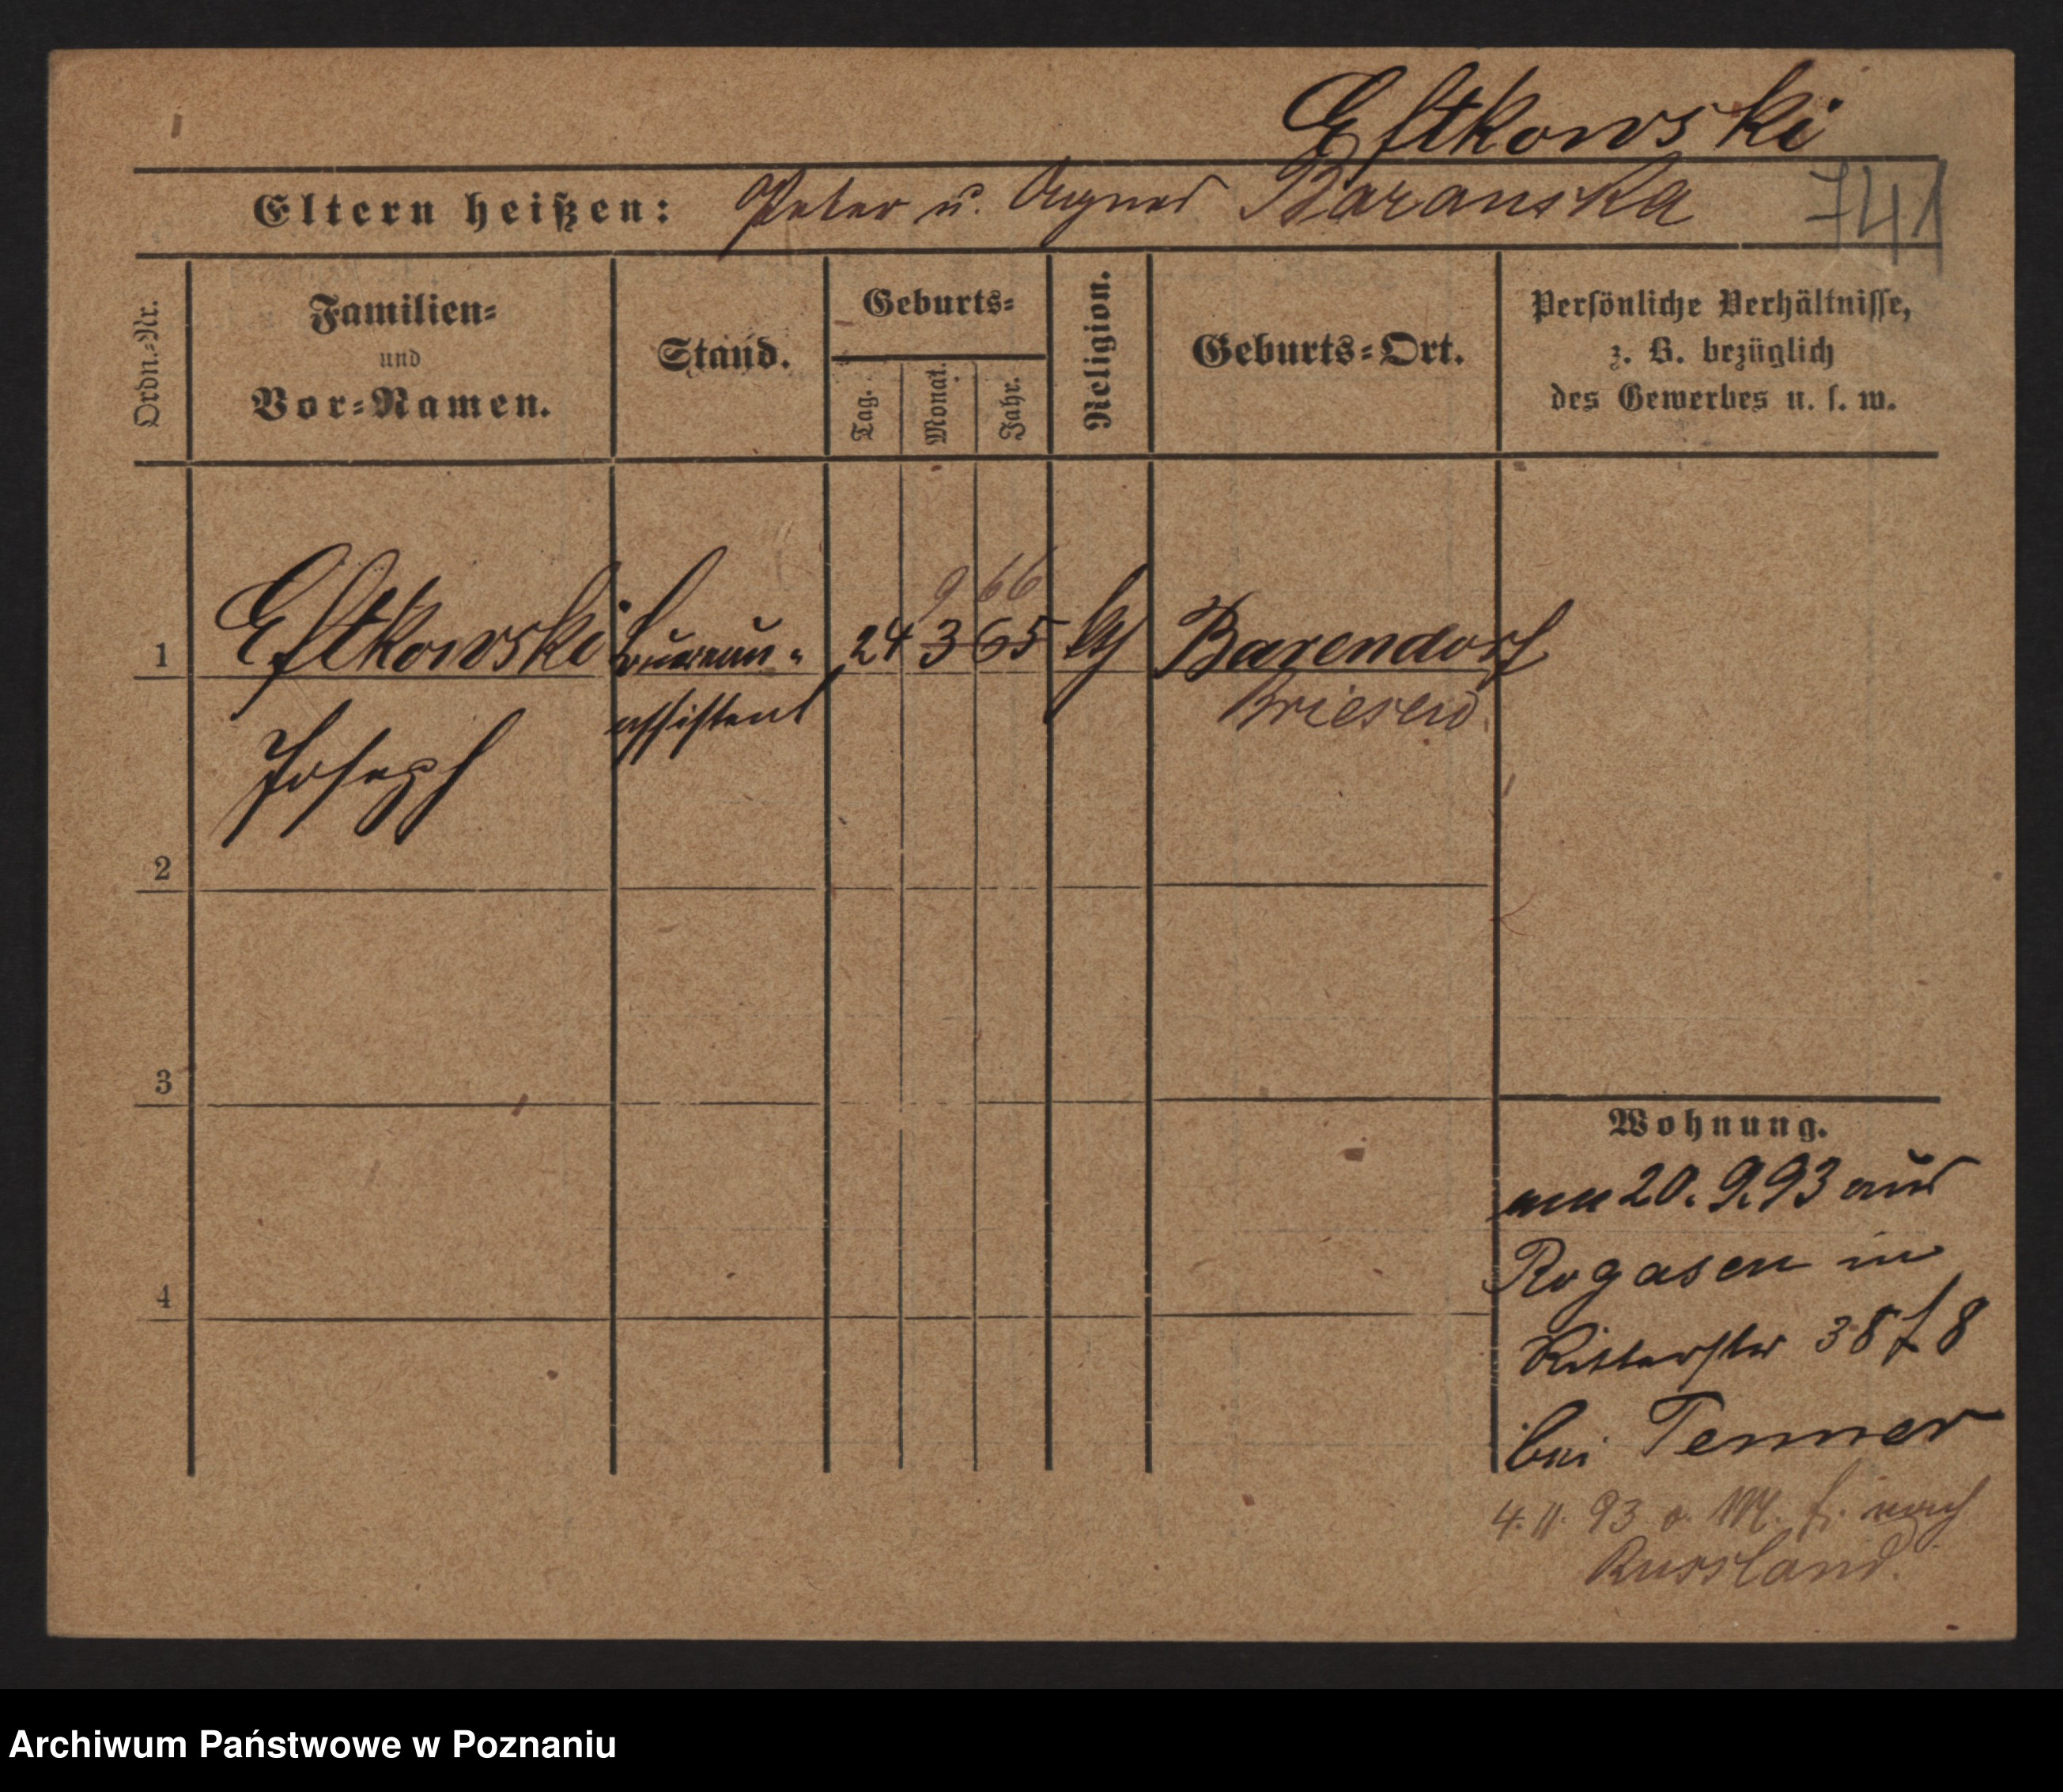 Eltkowski
Eltern heißen: Peter u. Agnes Baranska
741
Ordn.-Nr.
Familien-
und
Vor-Namen.
Stand.
Geburts-
Tag.
Monat.
Jahr.
Religion.
Geburts-Ort.
Persönliche Verhältnisse,
z. B. bezüglich
des Gewerbes u. s. w.
9 66
1 Eltkowski Bureau- 24 3 65 Barendorf
assistent Briesen
Joseph
2
3
4
Wohnung.
am 20. 9. 93 aus
Rogasen in
Ritterstr 38 f 8
bei Tenner
4. 11. 93 o. M. f. nach
Russland.
Archiwum Państwowe w Poznaniu